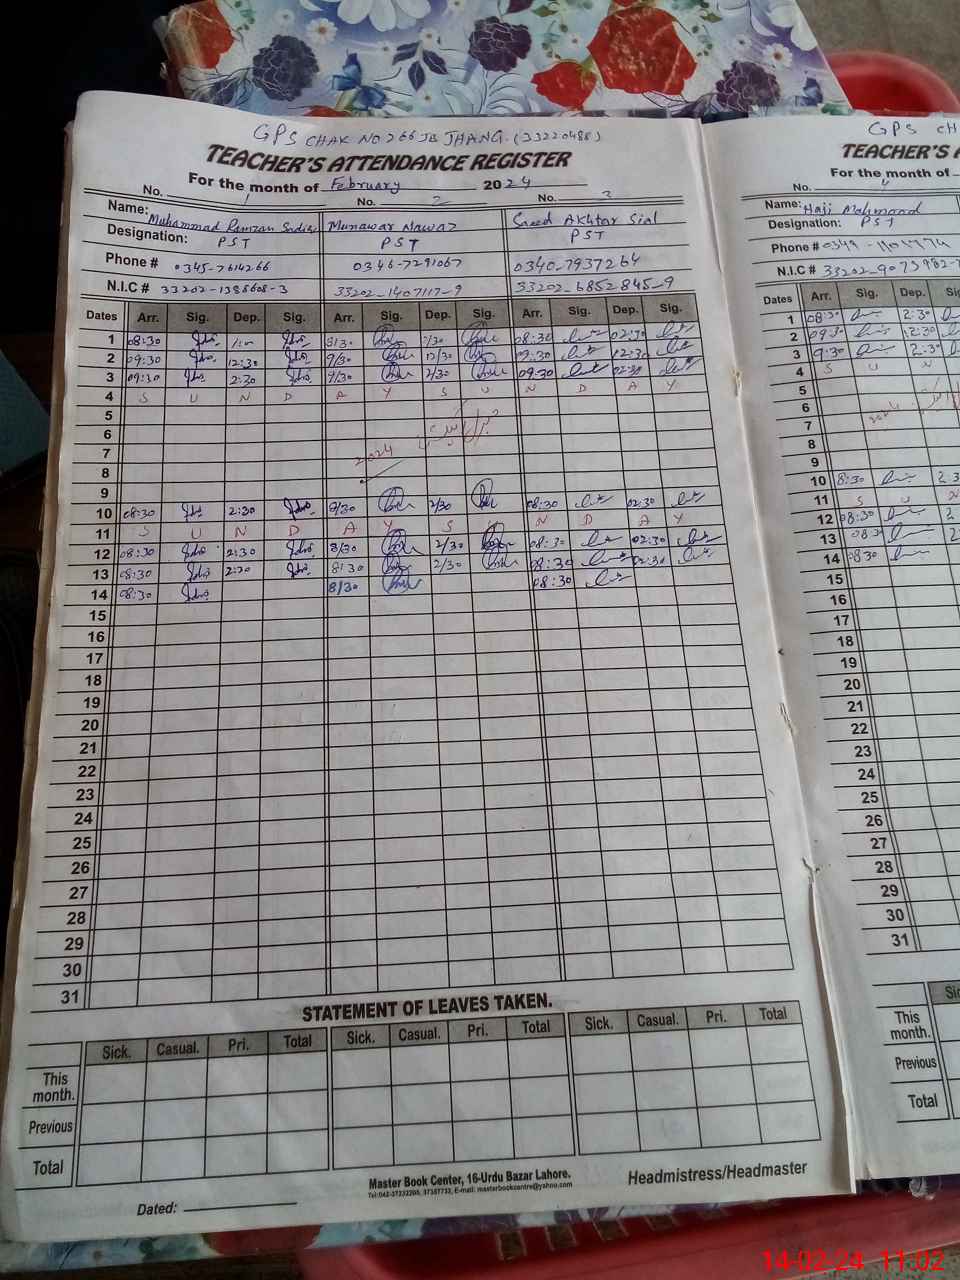 GPS CHAK NO 266 JB JHANG. (33220488)
TEACHER'S ATTENDANCE REGISTER
For the month of February 2024
No. 1 No. 2 No. 3
Name: Muhammad Ramzan Munawar Nawaz Saeed Akhtar Sial
Designation: PST PST PST
Phone # 0345-7614266 0346-7291067 0340-7937264
N.I.C # 33202-1388608-3 33202-1407117-9 33202-6852845-9
Dates Arr. Sig. Dep. Sig. Arr. Sig. Dep. Sig. Arr. Sig. Dep. Sig.
1 08:30 8/30 1/30 08:30 02:30
2 09:30 12:30 9/30 12/30 09:30 12:30
3 09:30 2:30 9/30 2/30 09:30 02:30
4 S U N D A Y S U N D A Y
5
6
7 2024
8
9
10 08:30 2:30 8/30 2/30 08:30 02:30
11 S U N D A Y S U N D A Y
12 08:30 2:30 8/30 2/30 08:30 02:30
13 08:30 2:30 8:30 2/30 08:30 02:30
14 08:30 8/30 08:30
15
16
17
18
19
20
21
22
23
24
25
26
27
28
29
30
31
STATEMENT OF LEAVES TAKEN.
Sick. Casual. Pri. Total Sick. Casual. Pri. Total Sick. Casual. Pri. Total
This month.
Previous
Total
Master Book Center, 16-Urdu Bazar Lahore.
Headmistress/Headmaster
Dated:
GPS CH
TEACHER'S A
For the month of
No. 4
Name: Haji Mahmood
Designation: PST
Phone # 0349
N.I.C # 33202-9073982-7
Dates Arr. Sig. Dep. Sig.
1 08:30 2:30
2 09:30 12:30
3 9:30 2:30
4 S U N
5
6
7
8
9
10 8:30 2:3
11 S U N
12 08:30 2
13 08:3 2
14 08:30
15
16
17
18
19
20
21
22
23
24
25
26
27
28
29
30
31
Sic
This month.
Previous
Total
14-02-24 11:02